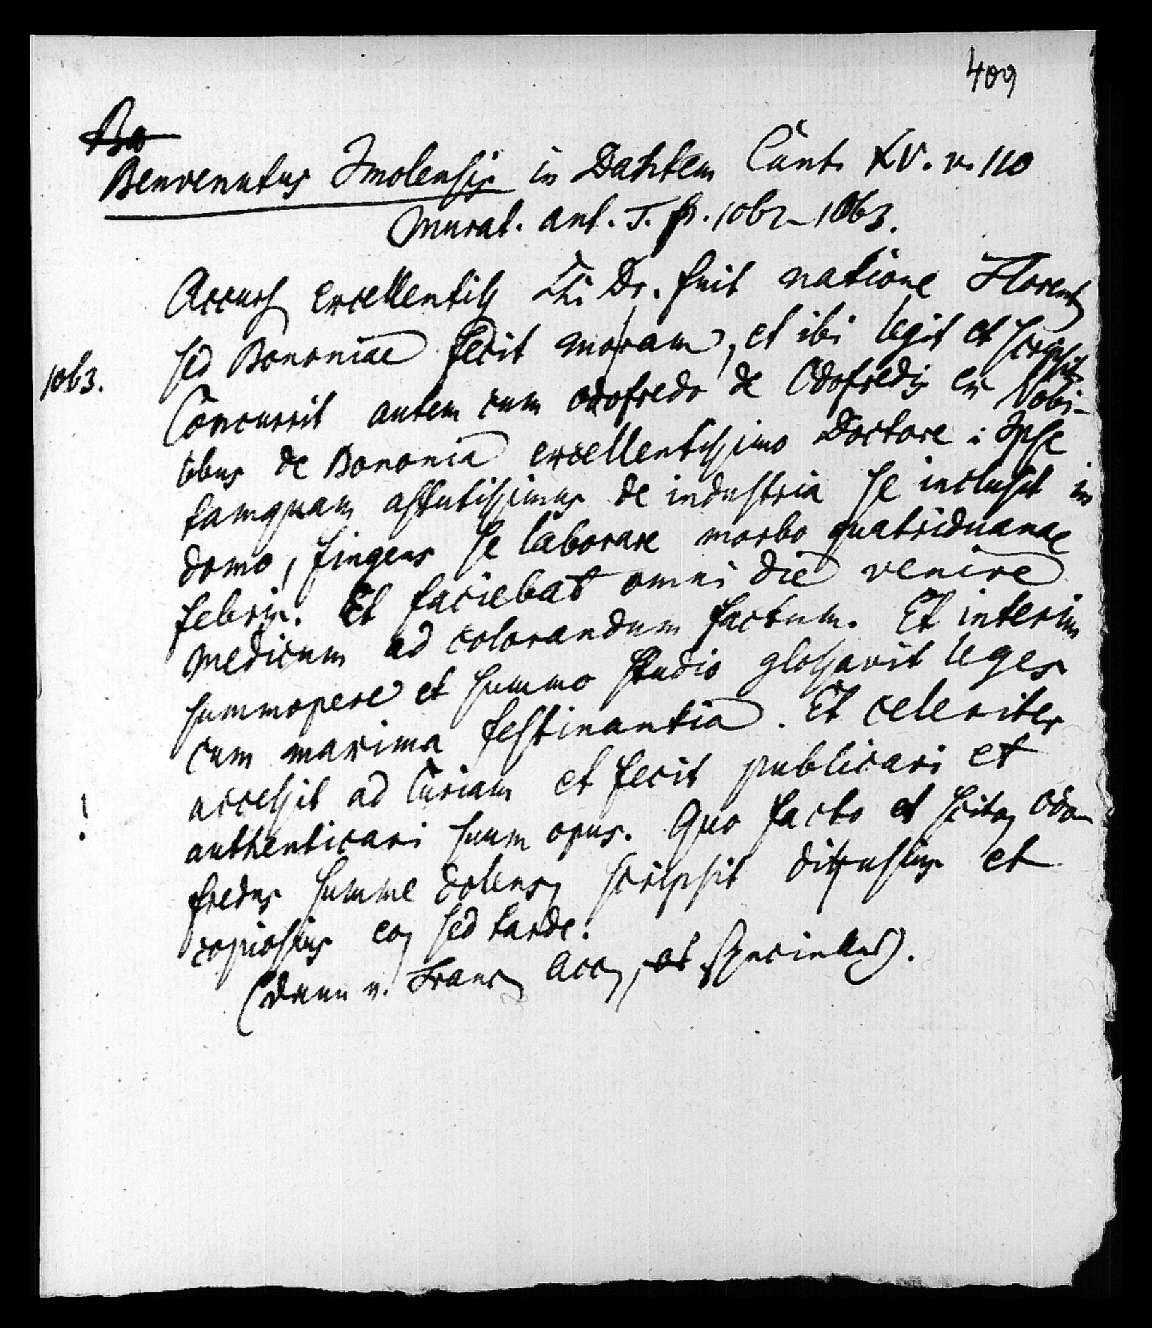 409
Bo
Benvenutus Imolensis in Dantem Cant. XV. v. 110
Murat. ant. T. p. 1062–1063.
Accurs. excellentiss. Dr. fuit natione Florent.
1063.
sed Bononiae fecit moram, et ibi legit et scripsit.
Concurrit autem cum Odofredo de Odofredis ex Nobi-
libus de Bononia excellentissimo Doctore: Ipse
tamquam astutissimus de industria se inclusit in
domo, fingens se laborare morbo quatriduanae
febris. Et faciebat omni die venire
medicum ad colorandum factum. Et interim
summopere et summo studio glossavit leges
cum maxima festinantia. Et celeriter
accessit ad Curiam et fecit publicari et
!
authenticari suum opus. Quo facto et scito, Odo-
fredus summe dolens, scripsit diffusius et
copiosius eo, sed tarde.
(dann v. Franc. Acc.,